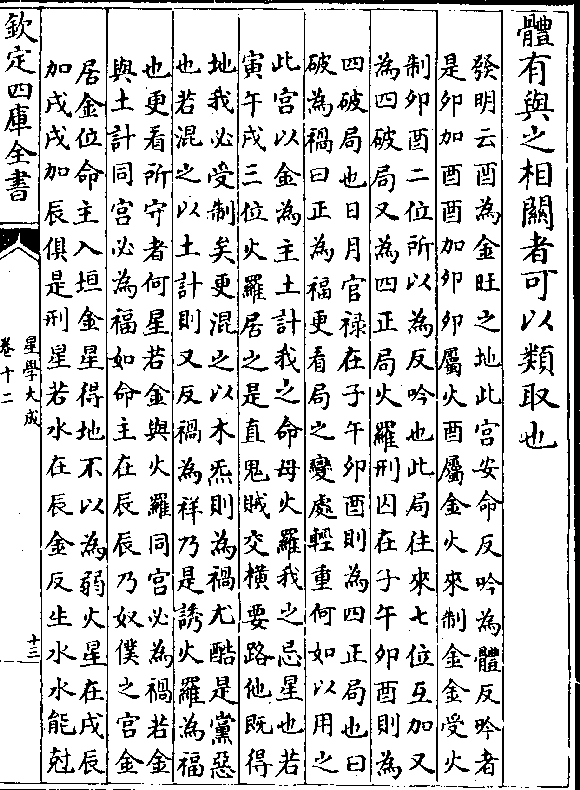 體有與之相關者可以類取也
發明云酉為金旺之地此宫安命反吟為體反吟者
是卯加酉酉加卯卯屬火酉屬金火來制金金受火
制卯酉二位所以為反吟也此局往來七位互加又
為四破局又為四正局火羅刑囚在子午卯酉則為
四破局也日月官禄在子午卯酉則為四正局也曰
破為禍曰正為福更看局之變處輕重何如以用之
此宫以金為主土計我之命母火羅我之忌星也若
寅午戌三位火羅居之是直鬼賊交橫要路他既得
地我必受制矣更混之以木炁則為禍尤酷是黨惡
也若混之以土計則又反禍為祥乃是誘火羅為福
也更看所守者何星若金與火羅同宫必為禍若金
與土計同宫必為福如命主在辰辰乃奴僕之宫金
居金位命主入垣金星得地不以為弱火星在戌辰
加戌戌加辰俱是刑星若水在辰金反生水水能尅
欽定四庫全書
星學大成
卷十二
十三